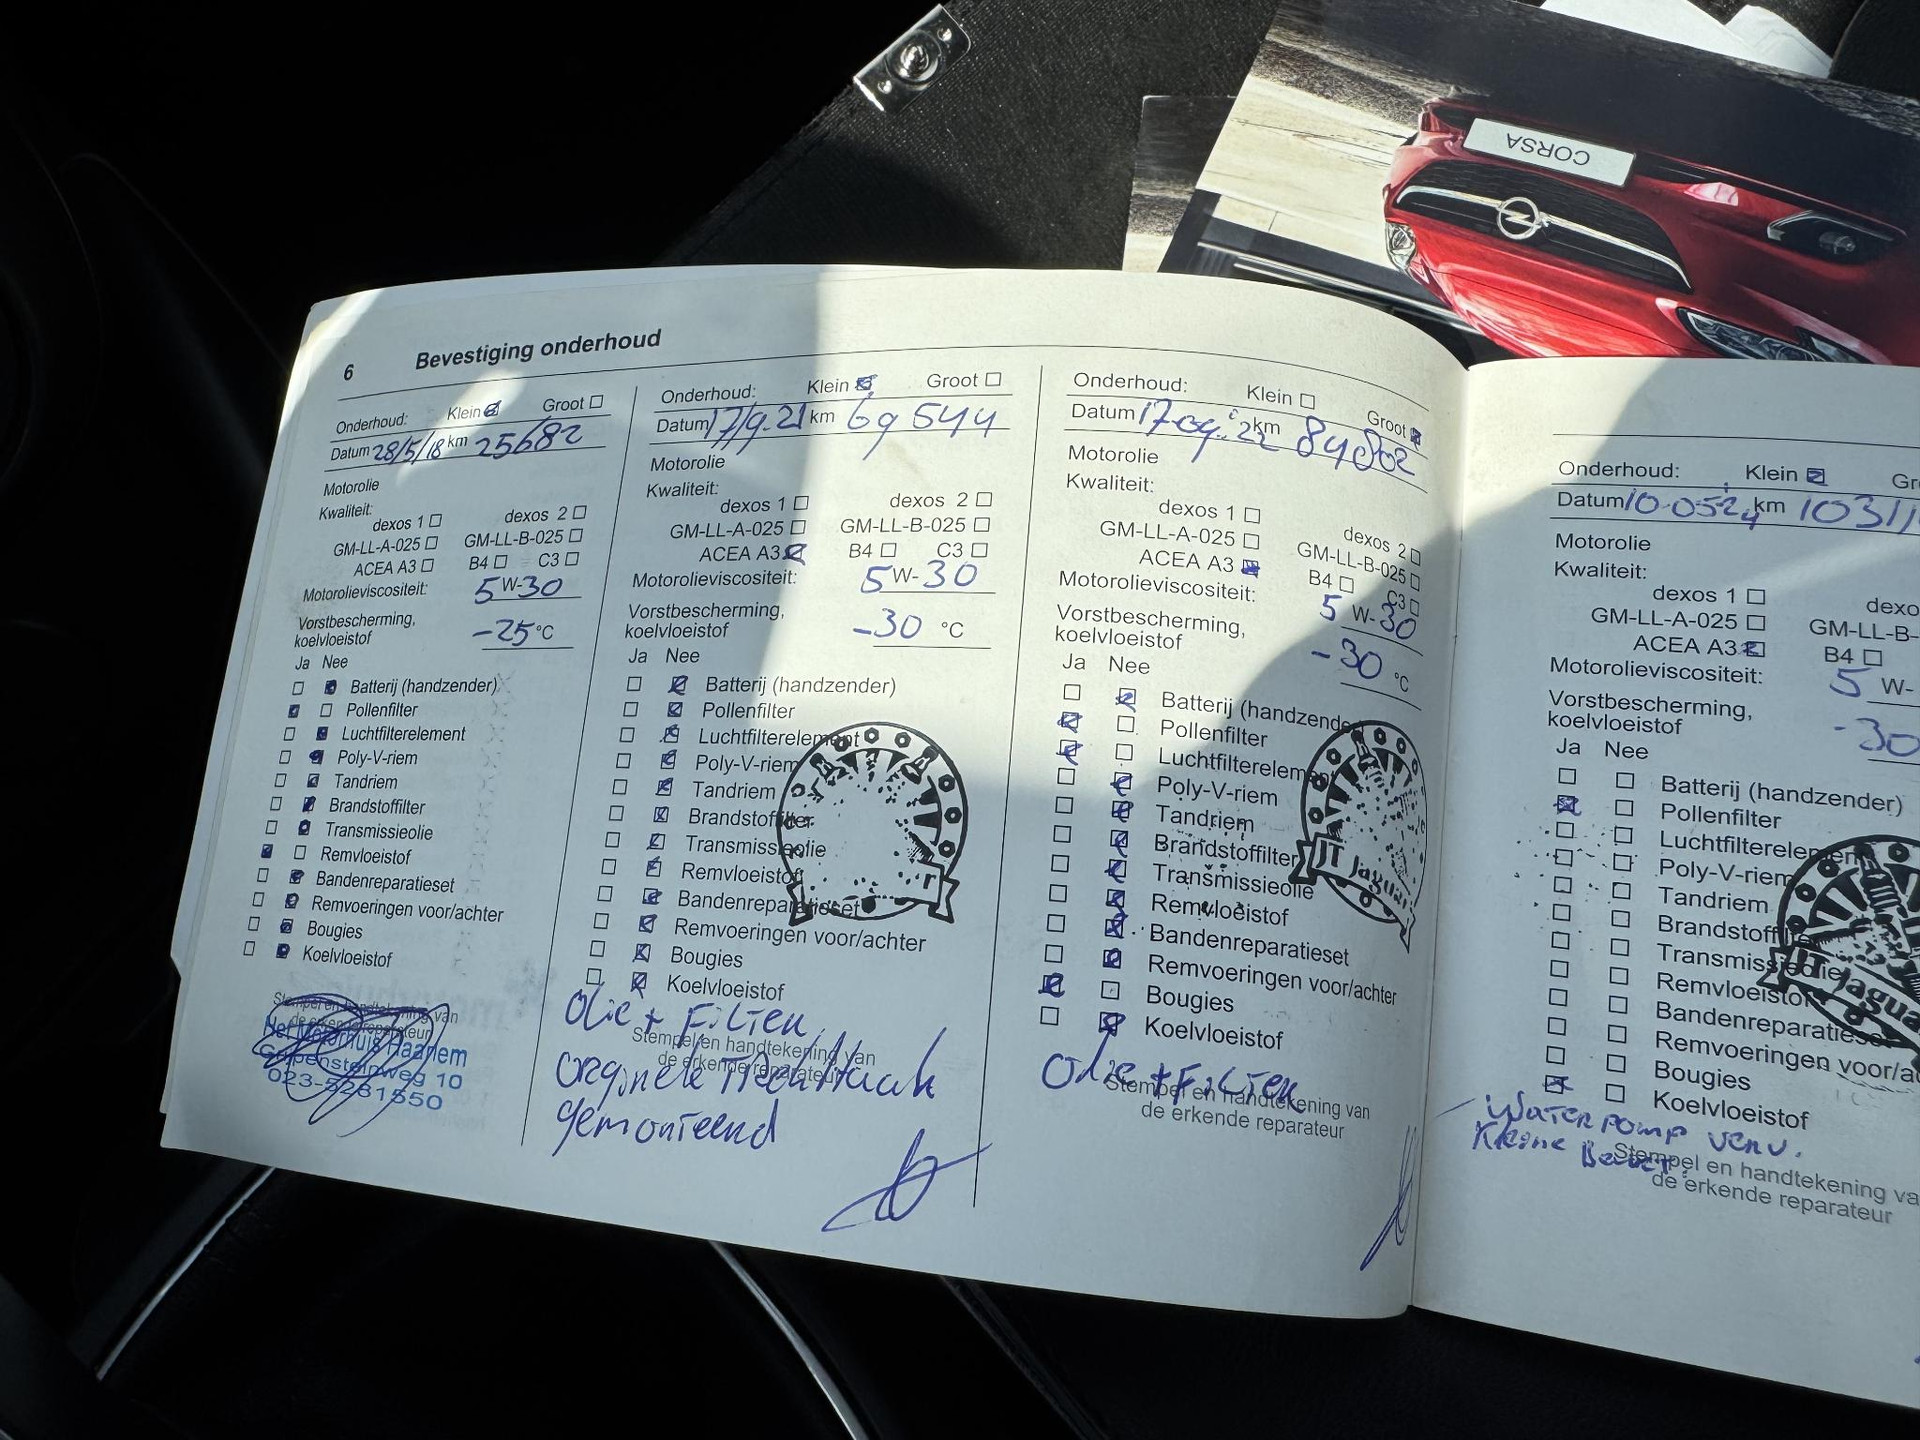 CORSA
6 Bevestiging onderhoud
Onderhoud: Klein Groot
Datum 28/5/18 km 25682
Motorolie
Kwaliteit:
dexos 1 dexos 2
GM-LL-A-025 GM-LL-B-025
ACEA A3 B4 C3
Motorolieviscositeit: 5 W-30
Vorstbescherming,
koelvloeistof -25 °C
Ja Nee
Batterij (handzender)
Pollenfilter
Luchtfilterelement
Poly-V-riem
Tandriem
Brandstoffilter
Transmissieolie
Remvloeistof
Bandenreparatieset
Remvoeringen voor/achter
Bougies
Koelvloeistof
Stempel en handtekening van
de erkende reparateur
Het Motorhuis Haarlem
weg 10
Onderhoud: Klein Groot
Datum 17/9.21 km 69 544
Motorolie
Kwaliteit:
dexos 1 dexos 2
GM-LL-A-025 GM-LL-B-025
ACEA A3 B4 C3
Motorolieviscositeit: 5 W-30
Vorstbescherming,
koelvloeistof -30 °C
Ja Nee
Batterij (handzender)
Pollenfilter
Luchtfilterelement
Poly-V-riem
Tandriem
Brandstoffilter
Transmissieolie
Remvloeistof
Bandenreparatieset
Remvoeringen voor/achter
Bougies
Koelvloeistof
Olie + Filter
Stempel en handtekening van
de erkende reparateur
orginele Trekhaak
gemonteerd
Onderhoud: Klein Groot
Datum 17 09. 22 km 84802
Motorolie
Kwaliteit:
dexos 1 dexos 2
GM-LL-A-025 GM-LL-B-025
ACEA A3 B4 C3
Motorolieviscositeit: 5 W-30
Vorstbescherming,
koelvloeistof -30 °C
Ja Nee
Batterij (handzender)
Pollenfilter
Luchtfilterelement
Poly-V-riem
Tandriem
Brandstoffilter
Transmissieolie
Remvloeistof
Bandenreparatieset
Remvoeringen voor/achter
Bougies
Koelvloeistof
JT Jaguar
Olie + Filter
Stempel en handtekening van
de erkende reparateur
Onderhoud: Klein Gr
Datum 10-05-24 km 10311
Motorolie
Kwaliteit:
dexos 1 dexo
GM-LL-A-025 GM-LL-B-
ACEA A3 B4
Motorolieviscositeit: 5 W-
Vorstbescherming,
koelvloeistof -30
Ja Nee
Batterij (handzender)
Pollenfilter
Luchtfilterelement
Poly-V-riem
Tandriem
Brandstoffilter
Transmissieolie
Remvloeistof
Bandenreparaties
Remvoeringen voor/a
Bougies
Koelvloeistof
JT Jagua
Waterpomp verv.
Kleine Beurt.
Stempel en handtekening va
de erkende reparateur